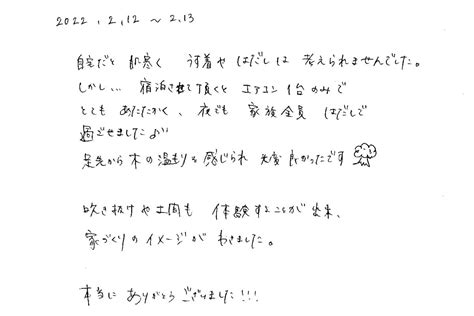 2022.2.12 〜 2.13
自宅だと 肌寒く うす着や はだしは 考えられませんでした。
しかし... 宿泊させて頂くと エアコン1台のみで
とても あたたかく、夜でも 家族全員 はだしで
過ごせました
足先から 木の温もりも感じられ 大変 良かったです
吹き抜けや土間も 体験することが出来、
家づくりのイメージが わきました。
本当に ありがとう ございました!!!